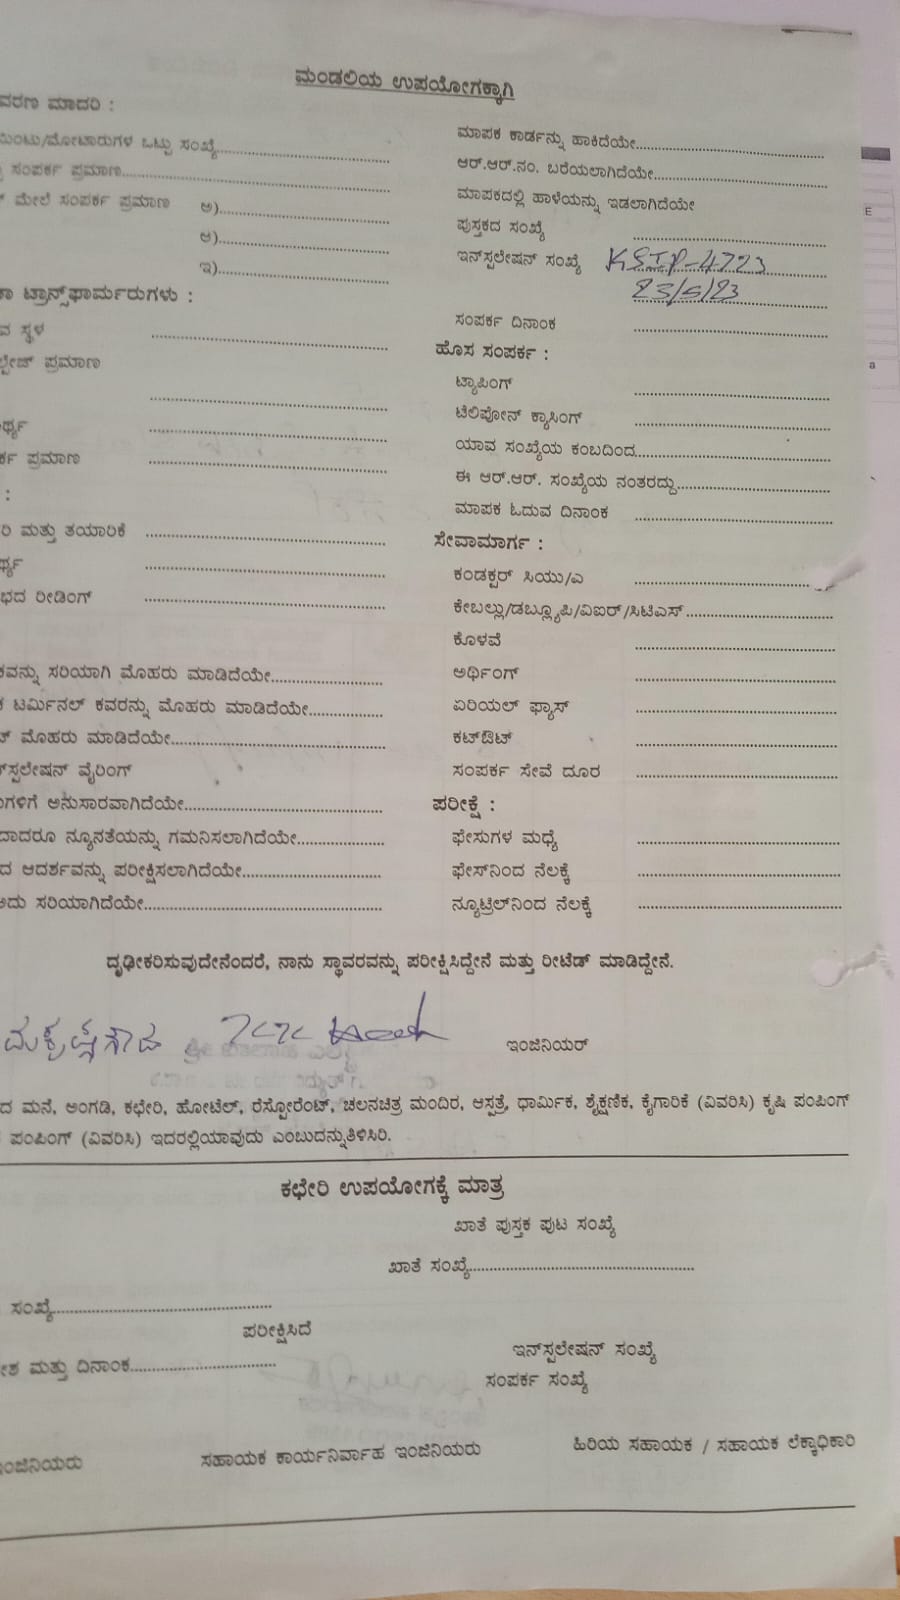 ಮಂಡಲಿಯ ಉಪಯೋಗಕ್ಕಾಗಿ
ವರಣ ಮಾದರಿ :
ಮಿಂಟು/ಮೋಟಾರುಗಳ ಒಟ್ಟು ಸಂಖ್ಯೆ
ಸಂಪರ್ಕ ಪ್ರಮಾಣ
ಮೇಲೆ ಸಂಪರ್ಕ ಪ್ರಮಾಣ ಅ)
ಆ)
ಇ)
ಟ್ರಾನ್ಸ್‌ಫಾರ್ಮರುಗಳು :
ವ ಸ್ಥಳ
ಲ್ಟೇಜ್ ಪ್ರಮಾಣ
ರ್ಥ್ಯ
ರ್ಕ ಪ್ರಮಾಣ
:
ರಿ ಮತ್ತು ತಯಾರಿಕೆ
ರ್ಥ್ಯ
ಭದ ರೀಡಿಂಗ್
ಕವನ್ನು ಸರಿಯಾಗಿ ಮೊಹರು ಮಾಡಿದೆಯೇ
ಕ ಟರ್ಮಿನಲ್ ಕವರನ್ನು ಮೊಹರು ಮಾಡಿದೆಯೇ
ಟ್ ಮೊಹರು ಮಾಡಿದೆಯೇ
ನ್‌ಸ್ಪಲೇಷನ್ ವೈರಿಂಗ್
ಗಳಿಗೆ ಅನುಸಾರವಾಗಿದೆಯೇ
ದಾದರೂ ನ್ಯೂನತೆಯನ್ನು ಗಮನಿಸಲಾಗಿದೆಯೇ
ದ ಆದರ್ಶವನ್ನು ಪರೀಕ್ಷಿಸಲಾಗಿದೆಯೇ
ಅದು ಸರಿಯಾಗಿದೆಯೇ
ಮಾಪಕ ಕಾರ್ಡನ್ನು ಹಾಕಿದೆಯೇ
ಆರ್.ಆರ್.ನಂ. ಬರೆಯಲಾಗಿದೆಯೇ
ಮಾಪಕದಲ್ಲಿ ಹಾಳೆಯನ್ನು ಇಡಲಾಗಿದೆಯೇ
ಪುಸ್ತಕದ ಸಂಖ್ಯೆ
ಇನ್‌ಸ್ಪಲೇಷನ್ ಸಂಖ್ಯೆ KSIP-4723
23/5/23
ಸಂಪರ್ಕ ದಿನಾಂಕ
ಹೊಸ ಸಂಪರ್ಕ :
ಟ್ಯಾಪಿಂಗ್
ಟೆಲಿಪೋನ್ ಕ್ಯಾಸಿಂಗ್
ಯಾವ ಸಂಖ್ಯೆಯ ಕಂಬದಿಂದ
ಈ ಆರ್.ಆರ್. ಸಂಖ್ಯೆಯ ನಂತರದ್ದು
ಮಾಪಕ ಓದುವ ದಿನಾಂಕ
ಸೇವಾಮಾರ್ಗ :
ಕಂಡಕ್ಟರ್ ಸಿಯು/ಎ
ಕೇಬಲ್ಲು/ಡಬ್ಲ್ಯೂಪಿ/ವಿಐರ್/ಸಿಟಿಎಸ್
ಕೊಳವೆ
ಅರ್ಥಿಂಗ್
ಏರಿಯಲ್ ಫ್ಯಾಸ್
ಕಟ್‌ಔಟ್
ಸಂಪರ್ಕ ಸೇವೆ ದೂರ
ಪರೀಕ್ಷೆ :
ಫೇಸುಗಳ ಮಧ್ಯೆ
ಫೇಸ್‌ನಿಂದ ನೆಲಕ್ಕೆ
ನ್ಯೂಟ್ರಲ್‌ನಿಂದ ನೆಲಕ್ಕೆ
ದೃಢೀಕರಿಸುವುದೇನೆಂದರೆ, ನಾನು ಸ್ಥಾವರವನ್ನು ಪರೀಕ್ಷಿಸಿದ್ದೇನೆ ಮತ್ತು ರೀಟೆಡ್ ಮಾಡಿದ್ದೇನೆ.
ಇಂಜಿನಿಯರ್
ದ ಮನೆ, ಅಂಗಡಿ, ಕಛೇರಿ, ಹೋಟೆಲ್, ರೆಸ್ಟೋರೆಂಟ್, ಚಲನಚಿತ್ರ ಮಂದಿರ, ಆಸ್ಪತ್ರೆ, ಧಾರ್ಮಿಕ, ಶೈಕ್ಷಣಿಕ, ಕೈಗಾರಿಕೆ (ವಿವರಿಸಿ) ಕೃಷಿ ಪಂಪಿಂಗ್
ಪಂಪಿಂಗ್ (ವಿವರಿಸಿ) ಇದರಲ್ಲಿಯಾವುದು ಎಂಬುದನ್ನುತಿಳಿಸಿರಿ.
ಕಛೇರಿ ಉಪಯೋಗಕ್ಕೆ ಮಾತ್ರ
ಖಾತೆ ಪುಸ್ತಕ ಪುಟ ಸಂಖ್ಯೆ
ಖಾತೆ ಸಂಖ್ಯೆ
ಸಂಖ್ಯೆ
ಪರೀಕ್ಷಿಸಿದೆ
ಇನ್‌ಸ್ಪಲೇಷನ್ ಸಂಖ್ಯೆ
ಶ ಮತ್ತು ದಿನಾಂಕ
ಸಂಪರ್ಕ ಸಂಖ್ಯೆ
ಇಂಜಿನಿಯರು ಸಹಾಯಕ ಕಾರ್ಯನಿರ್ವಾಹ ಇಂಜಿನಿಯರು ಹಿರಿಯ ಸಹಾಯಕ / ಸಹಾಯಕ ಲೆಕ್ಕಾಧಿಕಾರಿ